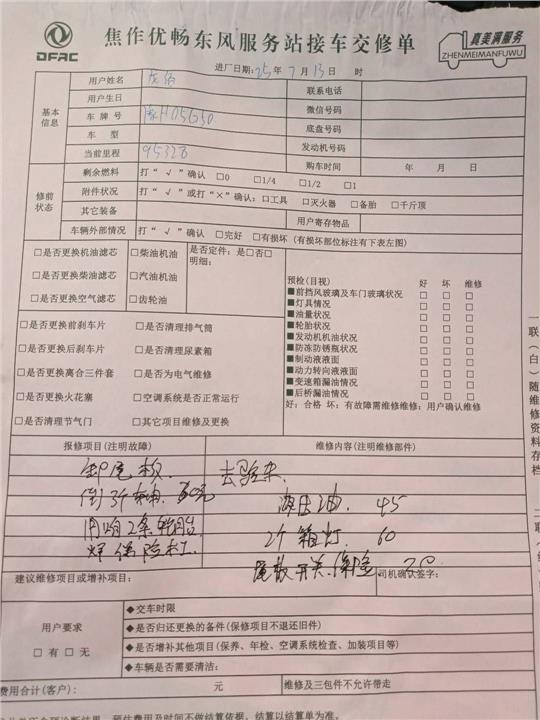 DFAC
焦作优畅东风服务站接车交修单
真美满服务
ZHENMEIMANFUWU
进厂日期: 25 年 7 月 13 日 时
基本信息
用户姓名
联系电话
用户生日
微信号码
车 牌 号 H05G50
底盘号码
车 型
发动机号码
当前里程 95328
购车时间 年 月 日
修前状态
剩余燃料 打“ √ ”确认 □0 □1/4 □1/2 □1
附件状况 打“ √ ”或打“×”确认:□工具 □灭火器 □备胎 □千斤顶
其它装备
用户寄存物品
车辆外部情况 打“ √ ”确认 □完好 □有损坏 (有损坏部位标注有下表左图)
□是否更换机油滤芯 □柴油机油 是否定件: 是□否□
明细:
□是否更换柴油滤芯 □汽油机油
□是否更换空气滤芯 □齿轮油
□是否更换前刹车片 □是否清理排气筒
□是否更换后刹车片 □是否清理尿素箱
□是否更换离合三件套 □是否为电气维修
□是否更换火花塞 □空调系统是否正常运行
□是否清理节气门 □其它项目维修及更换
预检(目视) 好 坏 维修
■前挡风玻璃及车门玻璃状况 □ □ □
■灯具情况 □ □ □
■油量状况 □ □ □
■轮胎状况 □ □ □
■发动机机油状况 □ □ □
■防冻防锈瓶状况 □ □ □
■制动液液面 □ □ □
■动力转向液液面 □ □ □
■变速箱漏油情况 □ □ □
■后桥漏油情况 □ □ □
好: 合格 坏: 有故障需维修维修: 用户确认维修
报修项目(注明故障)
维修内容(注明维修部件)
卸尾板.
液压油. 45
2个箱灯. 60
焊保险杠.
尾板开关.保险. 20
建议维修项目或增补项目:
司机确认签字:
用户要求
□ 有 □ 无
◆交车时限
◆是否归还更换的备件(保修项目不退还旧件)
◆是否增补其他项目(保养、年检、空调系统检查、加装项目等)
◆车辆是否需要清洁:
费用合计(客户): 元
维修及三包件不允许带走
预估费用及时间不做结算依据, 结算以结算单为准.
一联(白)随维修资料存档